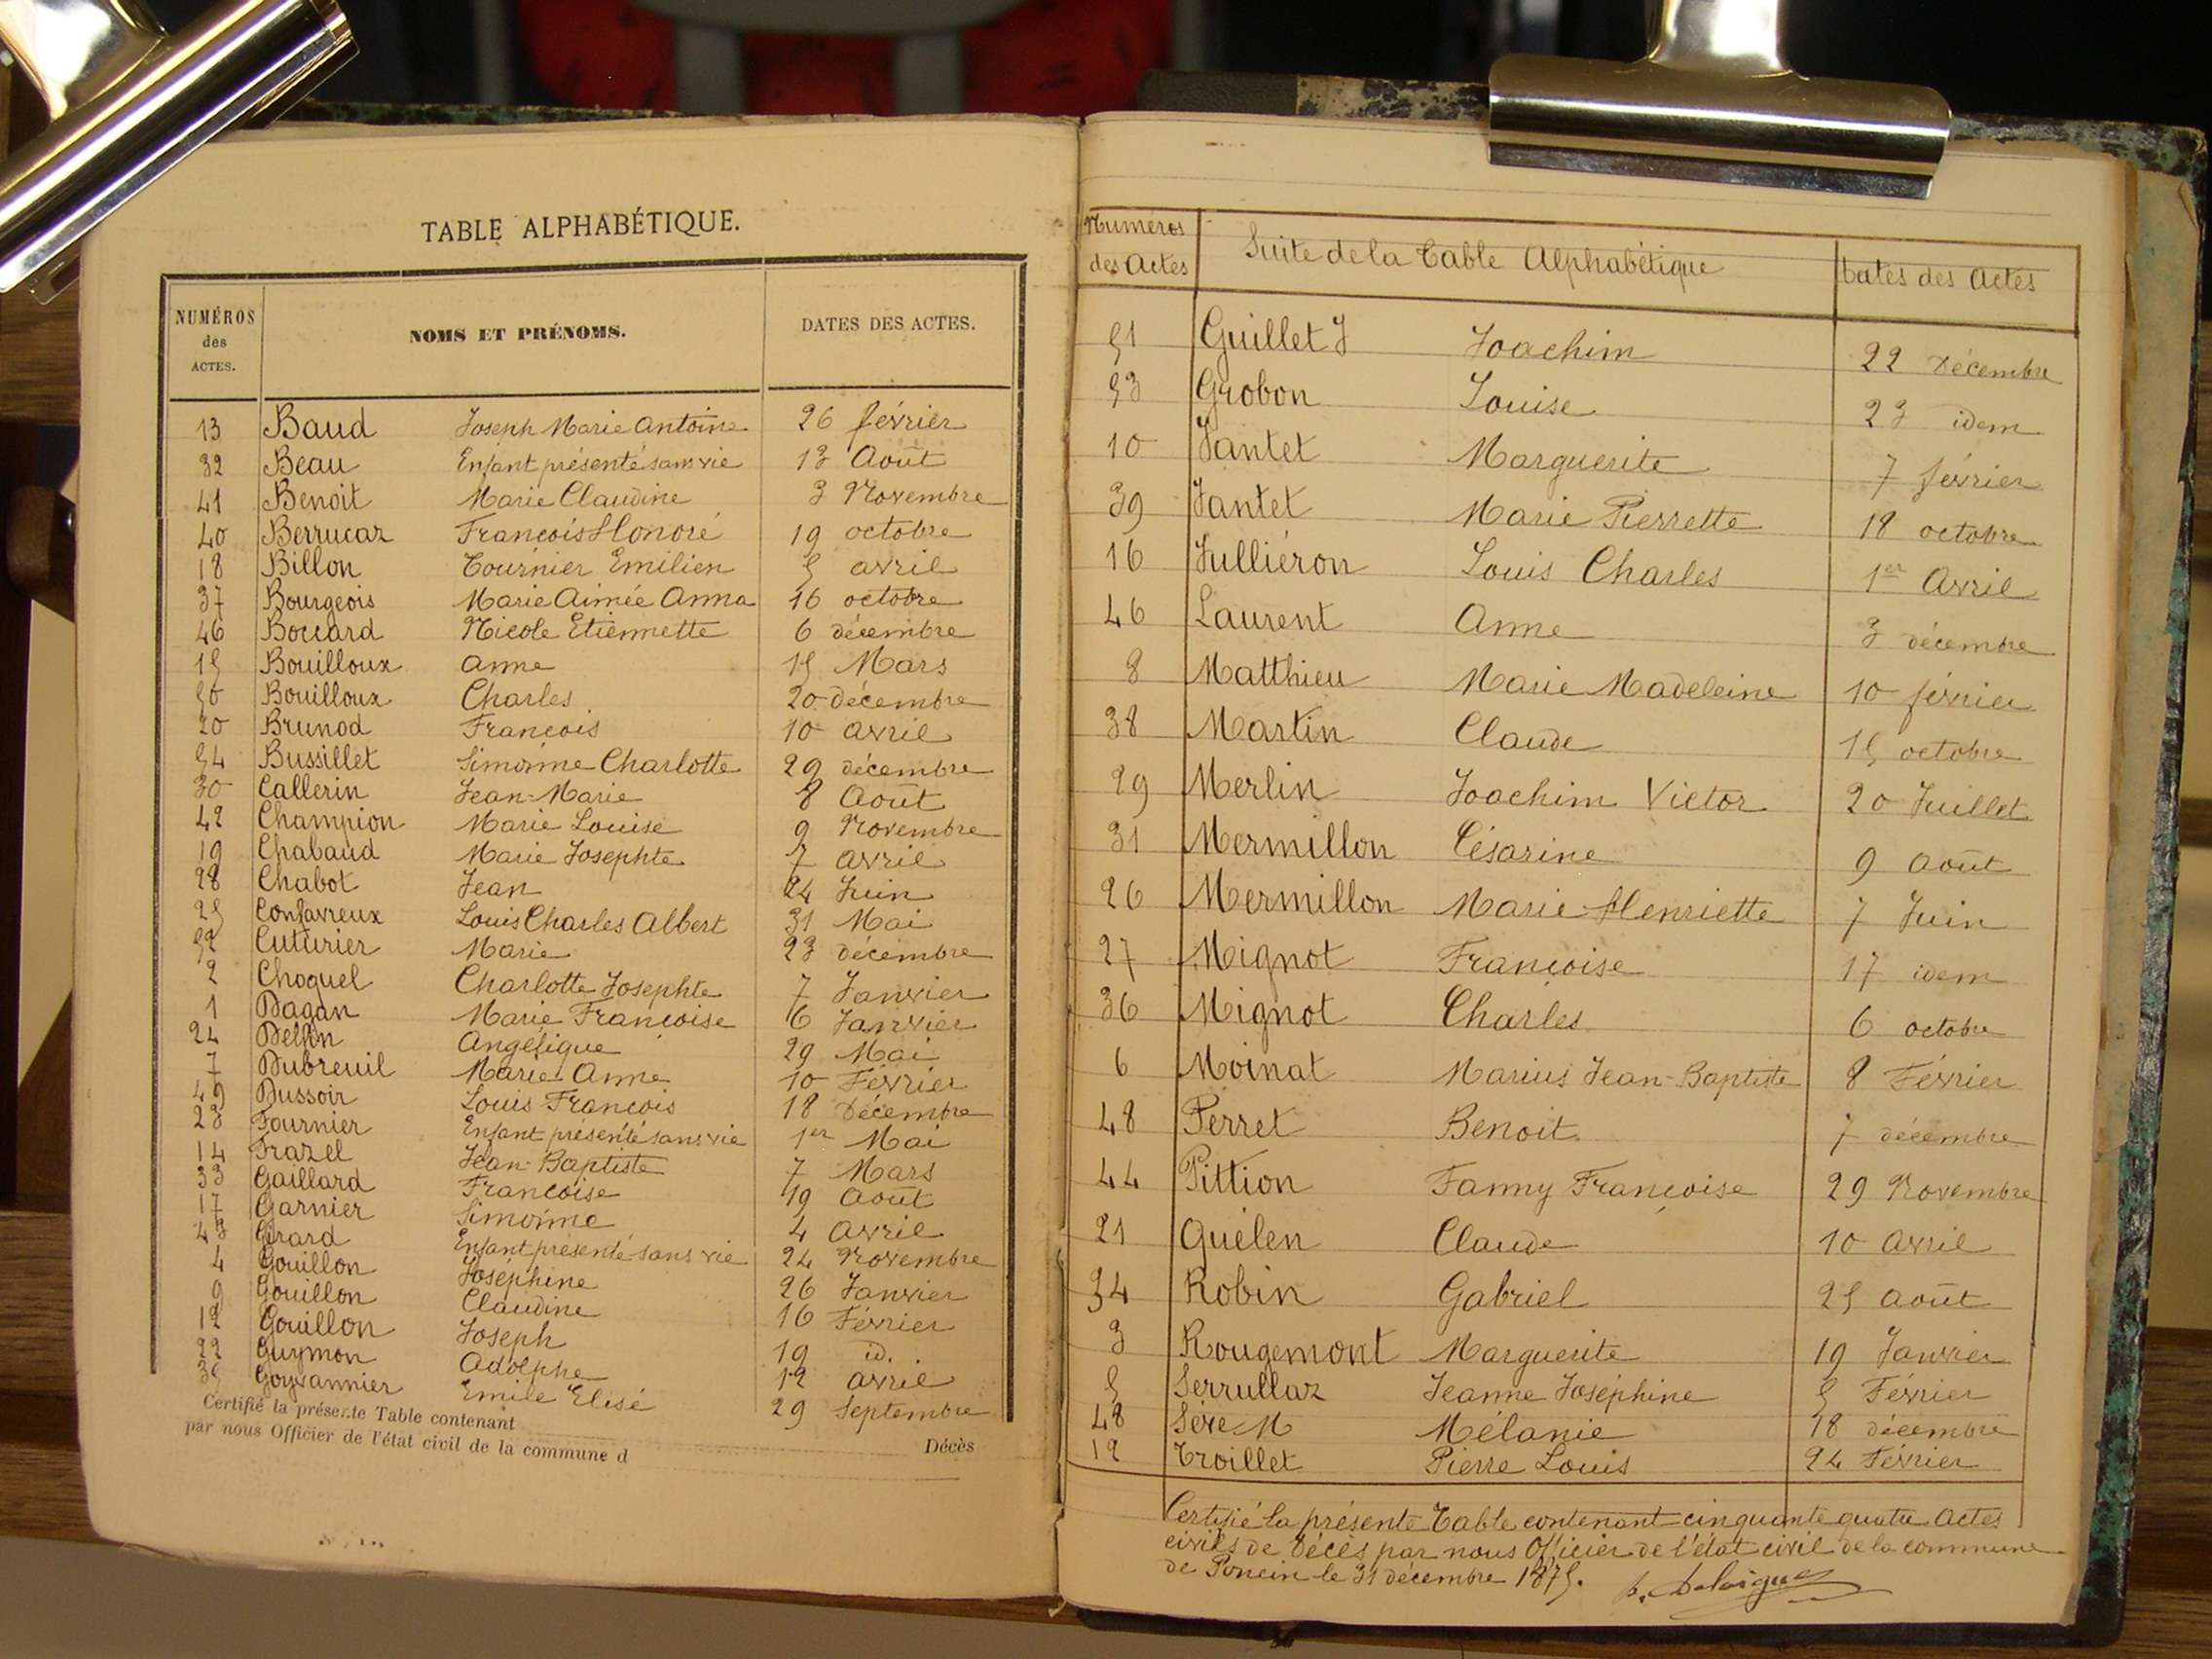 TABLE ALPHABÉTIQUE.
NUMÉROS des ACTES. NOMS ET PRÉNOMS. DATES DES ACTES.
13 Baud Joseph Marie Antoine 26 février
32 Beau Enfant présenté sans vie 13 Août
41 Benoit Marie Claudine 3 Novembre
40 Berrucaz François Honoré 19 octobre
18 Billon Tournier Emilien 5 avril
37 Bourgeois Marie Aimée Anna 16 octobre
46 Boccard Nicole Etiennette 6 décembre
15 Bouilloux Anne 15 Mars
50 Bouilloux Charles 20 décembre
20 Brunod François 10 avril
54 Bussillet Simonne Charlotte 29 décembre
30 Callerin Jean-Marie 8 Août
42 Champion Marie Louise 9 Novembre
19 Chabaud Marie Josephte 7 avril
28 Chabot Jean 24 Juin
25 Confavreux Louis Charles Albert 31 Mai
52 Cuturier Marie 23 décembre
2 Choquel Charlotte Josephte 7 Janvier
1 Dagan Marie Françoise 6 Janvier
24 Delfin Angélique 29 Mai
7 Dubreuil Marie Anne 10 Février
49 Dussoir Louis François 18 Décembre
23 Fournier Enfant présenté sans vie 1er Mai
14 Frazel Jean-Baptiste 7 Mars
33 Gaillard Françoise 19 Août
17 Garnier Simonne 4 Avril
43 Girard Enfant présenté sans vie 24 Novembre
4 Gouillon Joséphine 26 Janvier
9 Gouillon Claudine 16 Février
12 Gouillon Joseph 19 id.
22 Guymon Adolphe 12 avril
35 Goyvannier Emile Elisé 29 Septembre
Certifié la présente Table contenant Décès
par nous Officier de l'état civil de la commune d
Numéros des Actes Suite de la Table Alphabétique Dates des Actes
51 Guillet J Joachim 22 Décembre
53 Grobon Louise 23 idem
10 Jantet Marguerite 7 février
39 Jantet Marie Pierrette 18 octobre
16 Julliéron Louis Charles 1er Avril
46 Laurent Anne 3 décembre
8 Matthieu Marie Madeleine 10 février
38 Martin Claude 15 octobre
29 Merlin Joachim Victor 20 Juillet
31 Mermillon Césarine 9 Août
26 Mermillon Marie Henriette 7 Juin
27 Mignot Françoise 17 idem
36 Mignot Charles 6 octobre
6 Moinat Marius Jean-Baptiste 8 Février
48 Perret Benoit 7 décembre
44 Pittion Fanny Françoise 29 Novembre
21 Quélen Claude 10 Avril
34 Robin Gabriel 25 août
3 Rougemont Marguerite 19 Janvier
5 Serrullaz Jeanne Joséphine 5 Février
48 Sève M Mélanie 18 décembre
12 Troillet Pierre Louis 24 Février
Certifié la présente Table contenant cinquante quatre Actes
civils de Décès par nous Officier de l'état civil de la commune
de Poncin le 31 décembre 1875.